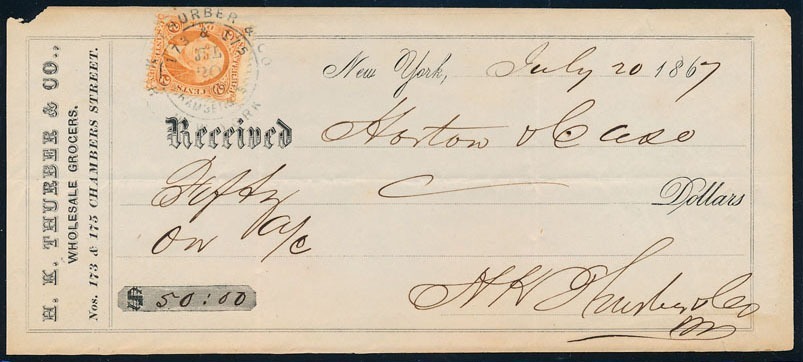 H. K. THURBER & CO.,
WHOLESALE GROCERS.
Nos. 173 & 175 CHAMBERS STREET.
THURBER & CO
173 & 175
JUL
20
CHAMBERS
CENTS
New York, July 20 1867
Received Horton & Case
Fifty Dollars
on a/c
$ 50:00
H K Thurber & Co